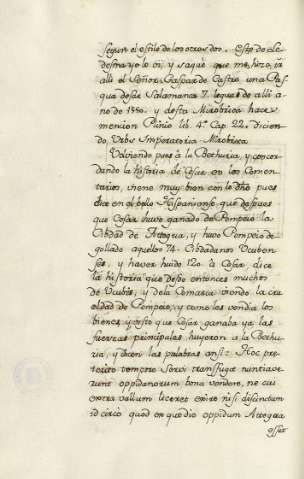 segun el estilo de los otros dos. Esto de Le-
desma yo lo vi, y saqué que me hizo, ir
alli el Señor Gaspar de Castro una Pas-
qua desde Salamanca 7. leguas de alli a-
ño de 1550. y desta Mirobrica hace
mencion Plinio lib. 4º Cap. 22. dicien-
do, Urbs Imperatoria Mirobrica.
Volviendo pues à la Bethuria, y concor-
dando la historia de Cesar en los Comen-
tarios, viene muy bien con lo dho pues
dice en el bello Hispaniense que despues
que Cesar huvo ganado de Pompeio la
Cibdad de Attegua, y huvo Pompeio de-
gollado aquellos 74. Cibdadanos Ucuben-
ses, y haver huido 120. à Cesar, dice
la historia que desde entonces muchos
de Ucubis, y de la Comarca viendo la cru-
eldad de Pompeio, y como les vendia los
bienes, y visto que Cesar ganaba ya las
fuerzas principales huyeron a la Bethu-
ria, y dicen las palabras ansi: Hoc pre-
terito tempore Servi transfugæ nuntiave-
runt oppidanorum bona vendere, ne cui
extra vallum liceret exire nisi discinctum
id circo quod ex quo die oppidum Attegua
esset